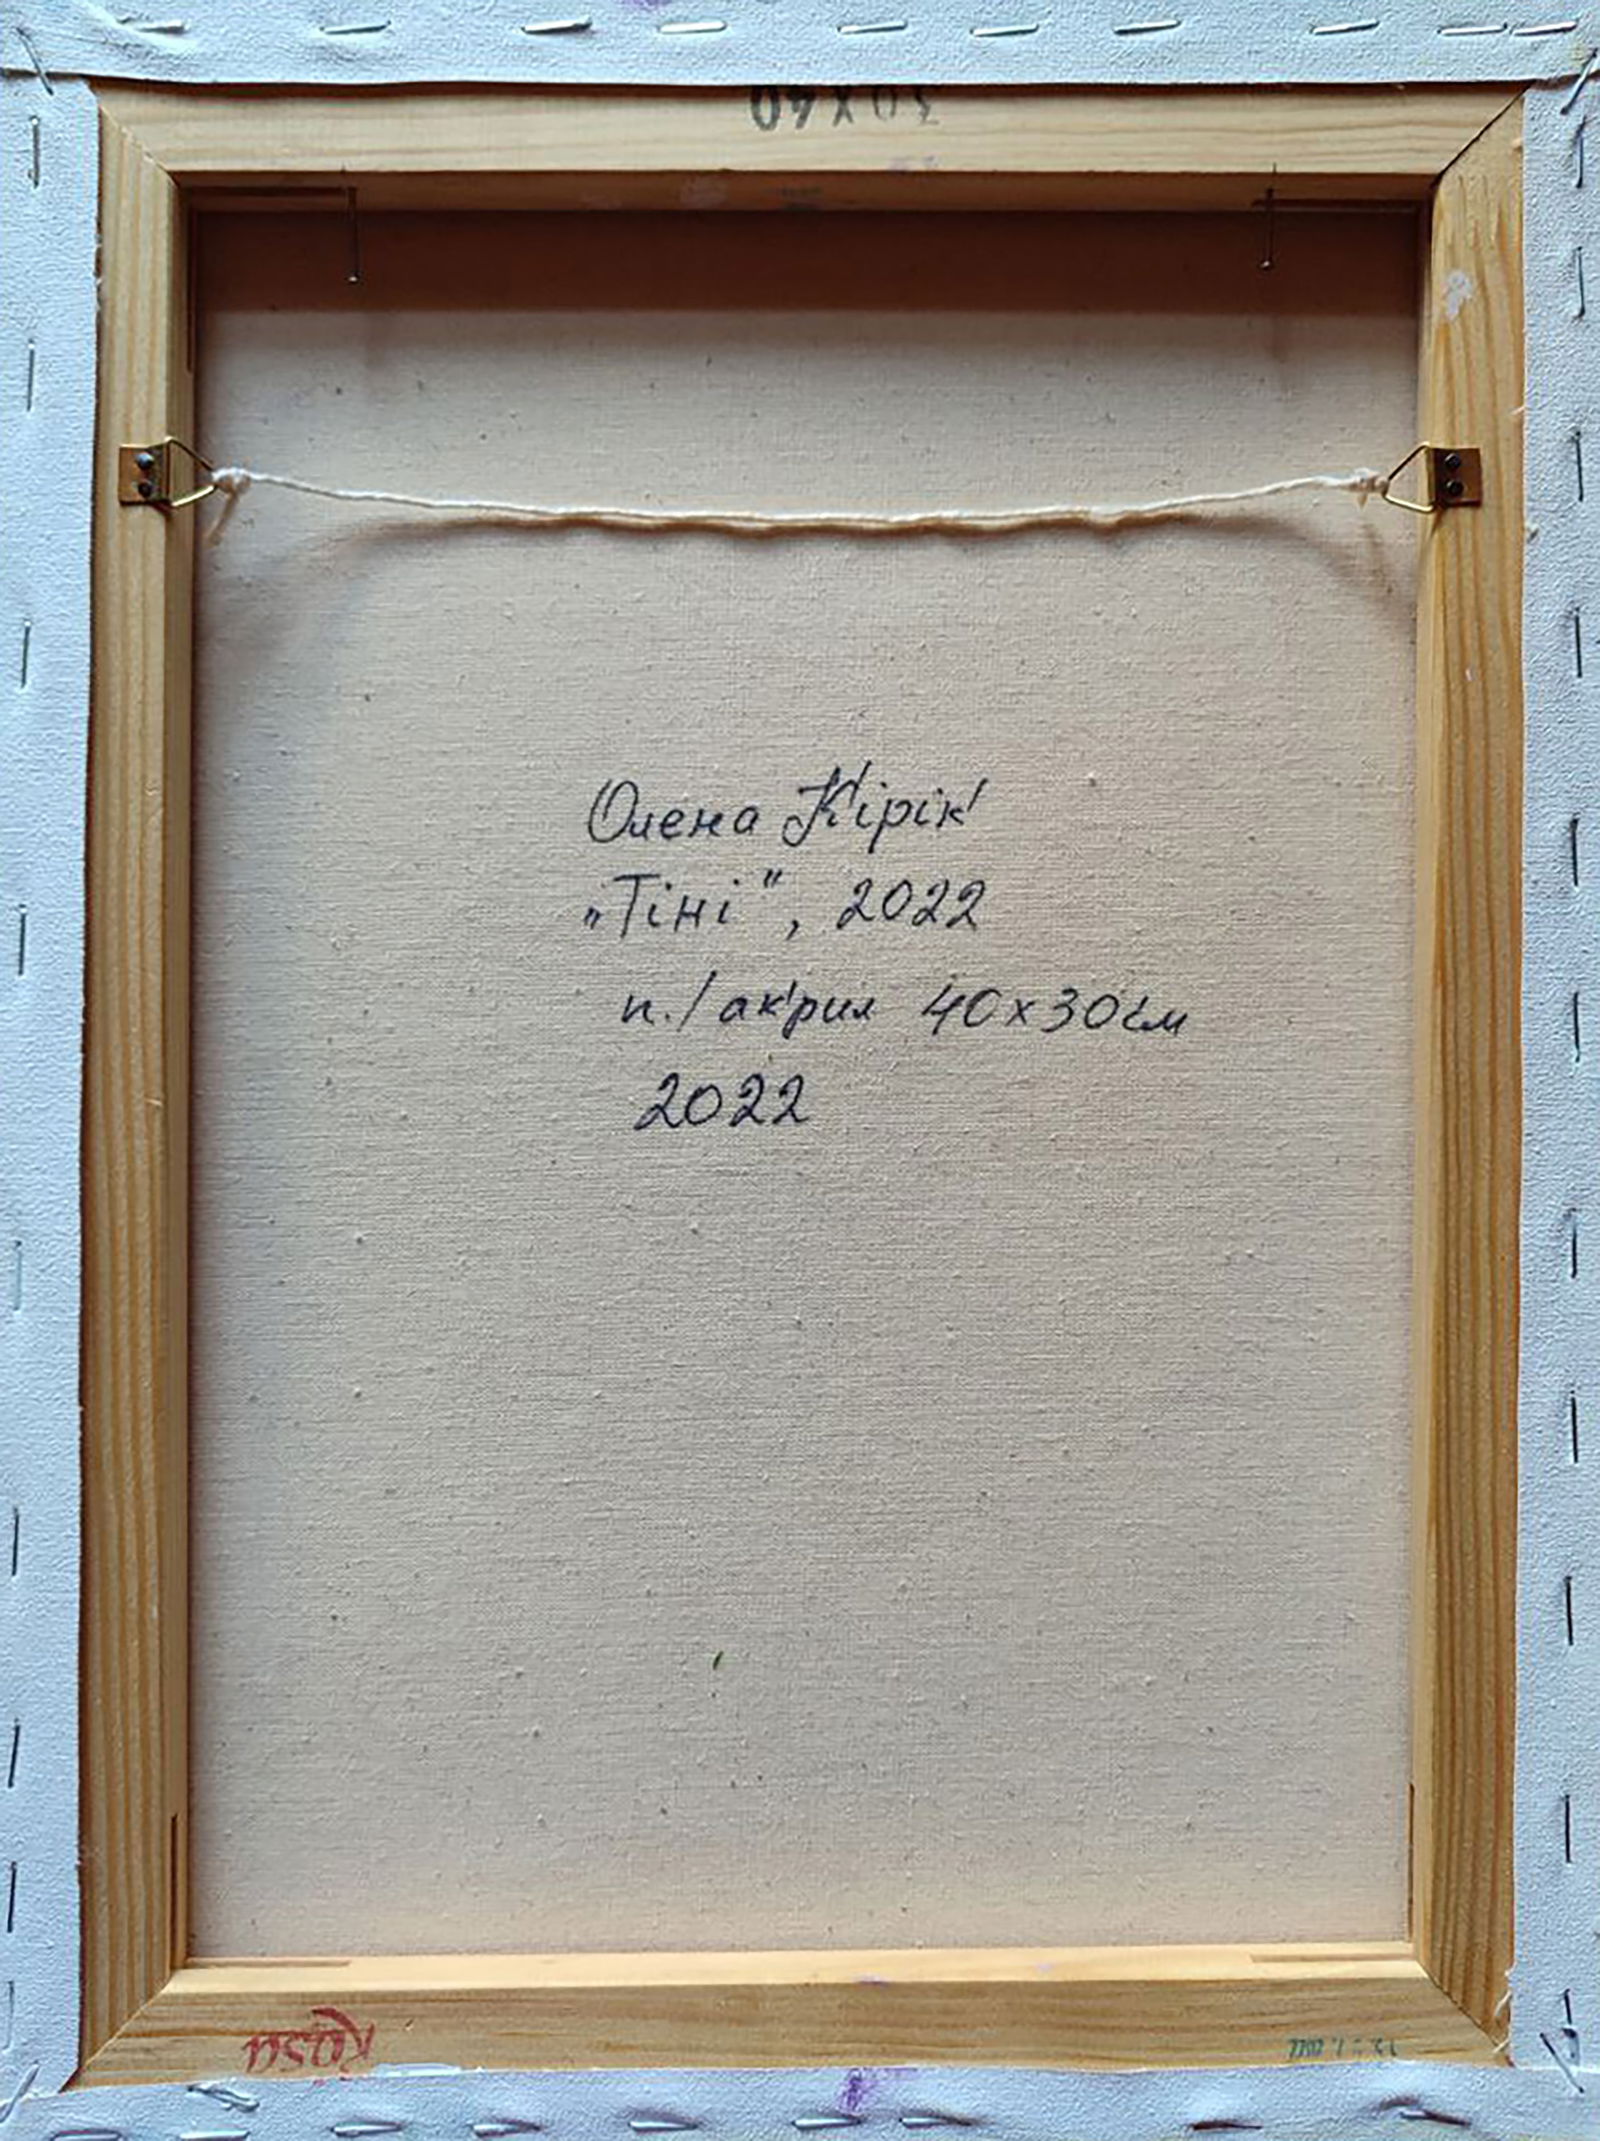 30x40
Олена Кірік
„Тіні", 2022
п./акрил 40х30см
2022
Rosa